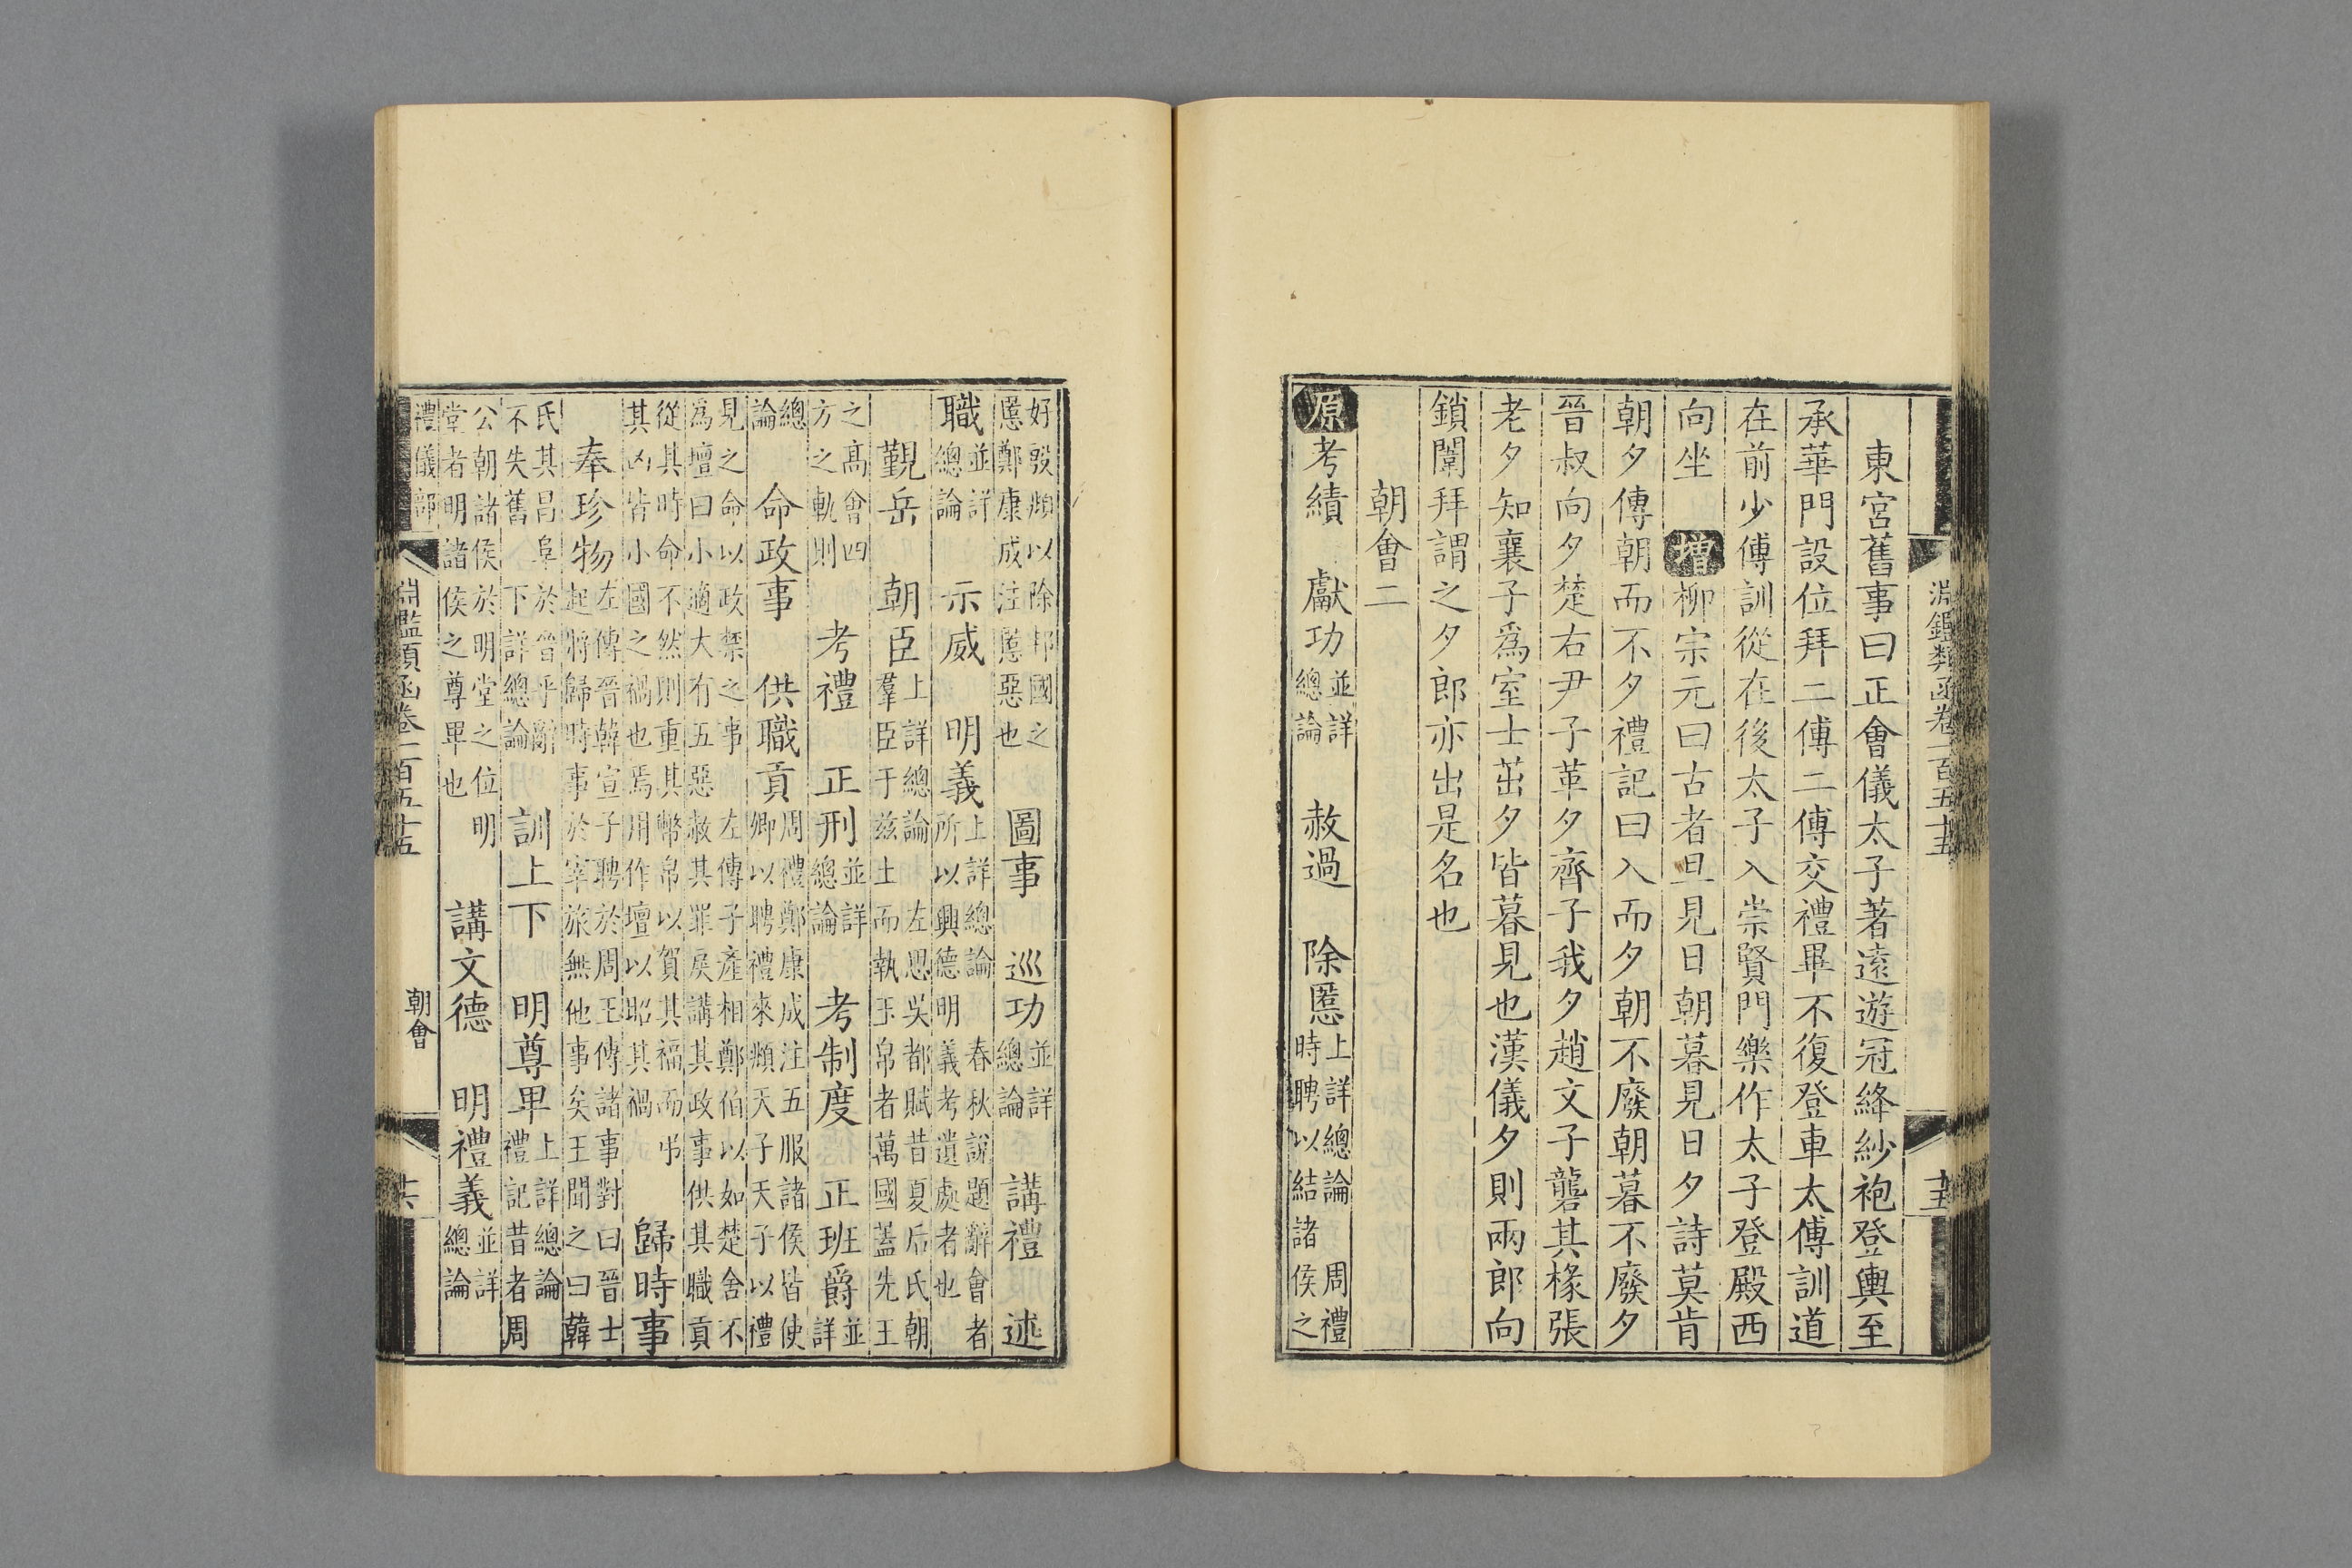 淵鑑類函卷一百五十五
十五
東宮舊事曰正會儀太子著遠遊冠絳紗袍登輿至
承華門設位拜二傅二傅交禮畢不復登車太傅訓道
在前少傅訓從在後太子入崇賢門樂作太子登殿西
向坐 增柳宗元曰古者旦見曰朝暮見曰夕詩莫肯
朝夕傳朝而不夕禮記曰入而夕朝不廢朝暮不廢夕
晉叔向夕楚右尹子革夕齊子我夕趙文子礱其椽張
老夕知襄子爲室士茁夕皆暮見也漢儀夕則兩郎向
鎖闈拜謂之夕郎亦出是名也
朝會二
原考績 獻功並詳總論 赦過 除慝上詳總論 周禮時聘以結諸侯之
好殷覜以除邦國之慝鄭康成注慝惡也 圖事 巡功並詳總論 講禮 述
職並詳總論 示威 明義上詳總論 春秋說題辭會者所以興德明義考遺處者也
覲岳 朝臣上詳總論 左思吳都賦昔夏后氏朝羣臣于茲土而執玉帛者萬國蓋先王
之高會四方之軌則 考禮 正刑並詳總論 考制度 正班爵並詳
總論 命政事 供職貢周禮鄭康成注五服諸侯皆使卿以聘禮來覜天子天子以禮
見之命以政禁之事 左傳子產相鄭伯以如楚舍不爲壇曰小適大有五惡赦其罪戾講其政事供其職貢
從其時命不然則重其幣帛以賀其福而弔其凶皆小國之禍也焉用作壇以昭其禍 歸時事
奉珍物左傳晉韓宣子聘於周王傳諸事對曰晉士起將歸時事於宰旅無他事矣王聞之曰韓
氏其昌阜於晉乎辭不失舊 下詳總論 訓上下 明尊卑上詳總論 禮記昔者周
公朝諸侯於明堂之位明堂者明諸侯之尊卑也 講文德 明禮義並詳總論
禮儀部
淵鑑類函卷一百五十五
朝會
十六